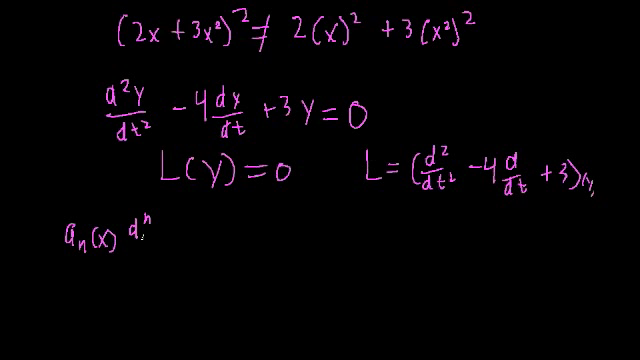 (2x + 3x²)² ≠ 2(x)² + 3(x²)²
d²y/dt² - 4 dy/dt + 3y = 0
L(y) = 0 L = (d²/dt² - 4 d/dt + 3)(y)
aₙ(x) dⁿ